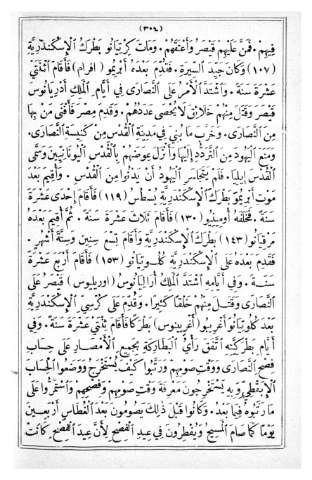 (٣٠٤)
فيهم . فمن عليهم قيصر وأعتقهم . ومات كرتيانو بطرك الإسكندرية
(١٠٧) وكان جيد السيرة . فقدم بعده أبريمو (افرام) فأقام اثنتي
عشرة سنة . واشتد الأمر على النصارى في أيام الملك أدريانوس
قيصر وقتل منهم خلائق لا يحصى عددهم . وقدم مصر فأفنى من بها
من النصارى . وخرب ما بني في مدينة القدس من كنيسة النصارى .
ومنع اليهود من التردد إليها وأنزل عوضهم بالقدس اليونانيين وسمى
القدس إيليا . فلم يتجاسر اليهود أن يدنوا من القدس . وأقيم بعد
موت أبريمو بطرك الإسكندرية يسطس (١١٩) فأقام إحدى عشرة
سنة . فخلفه أومينيو (١٣٠) فأقام ثلاث عشرة سنة . ثم أقيم بعده
مرقيانو (١٤٣) بطرك الإسكندرية وأقام تسع سنين وستة أشهر .
فقدم بعده على الإسكندرية كلوتيانو (١٥٣) فأقام أربع عشرة
سنة . وفي أيامه اشتد الملك أرياليانوس (اوريليوس) قيصر على
النصارى وقتل منهم خلقا كثيرا . وقدم على كرسي الإسكندرية
بعد كلوتيانو أغريبو (أغريبنوس) بطركا فأقام ثنتي عشرة سنة . وفي
أيام بطركته اتفق رأي البطاركة بجميع الأمصار على حساب
فصح النصارى ووقت صومهم ورتبوا كيف يستخرج ووضعوا الحساب
الإبقطي وبه يستخرجون معرفة وقت صومهم وفصحهم واستمروا على
ما رتبوه فيما بعد . وكانوا قبل ذلك يصومون بعد الغطاس أربعين
يوما كما صام المسيح ويفطرون في عيد الفصح لأن عيد الفصح كانت